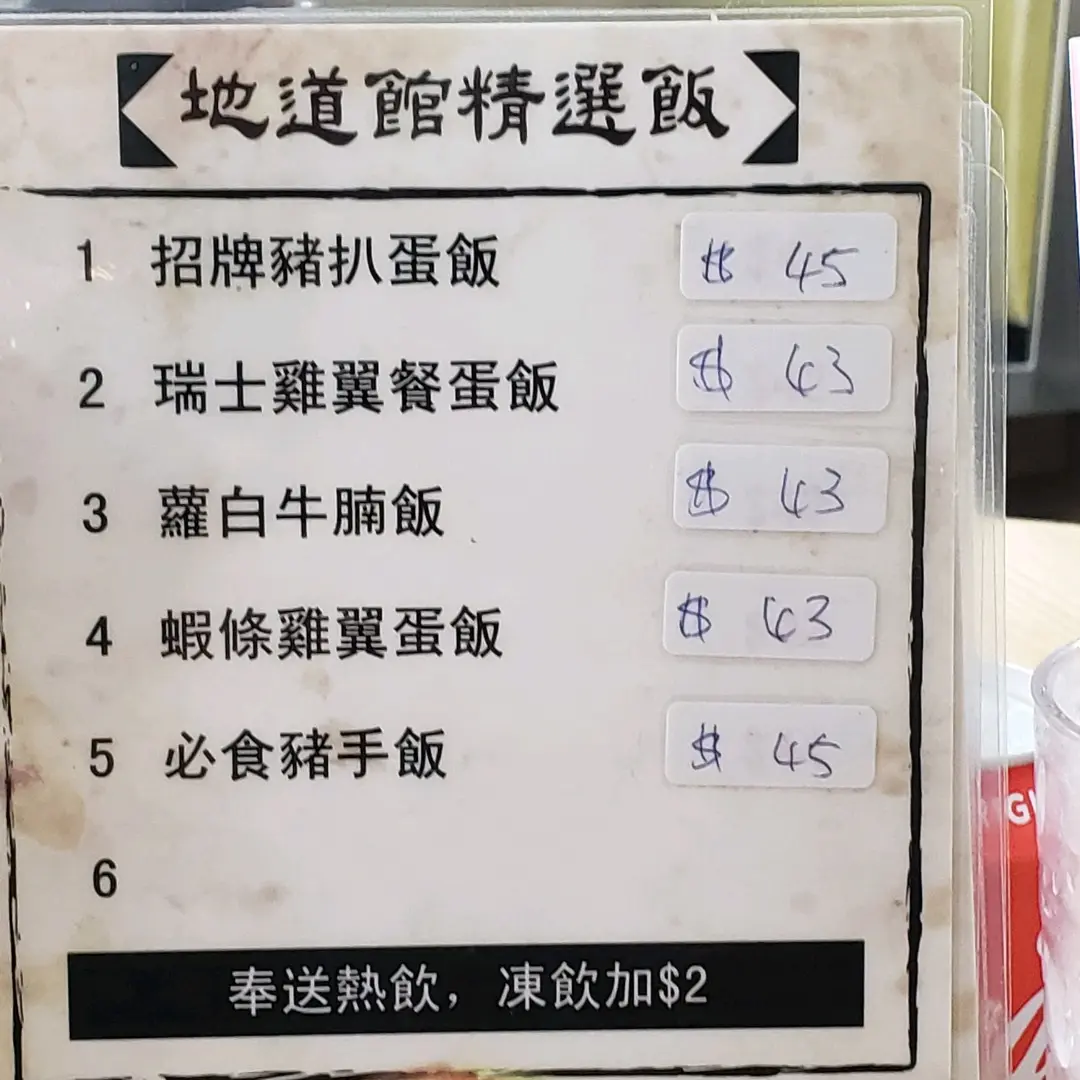 地道館精選飯
1 招牌豬扒蛋飯 $ 45
2 瑞士雞翼餐蛋飯 $ 43
3 蘿白牛腩飯 $ 43
4 蝦條雞翼蛋飯 $ 43
5 必食豬手飯 $ 45
6
奉送熱飲，凍飲加$2